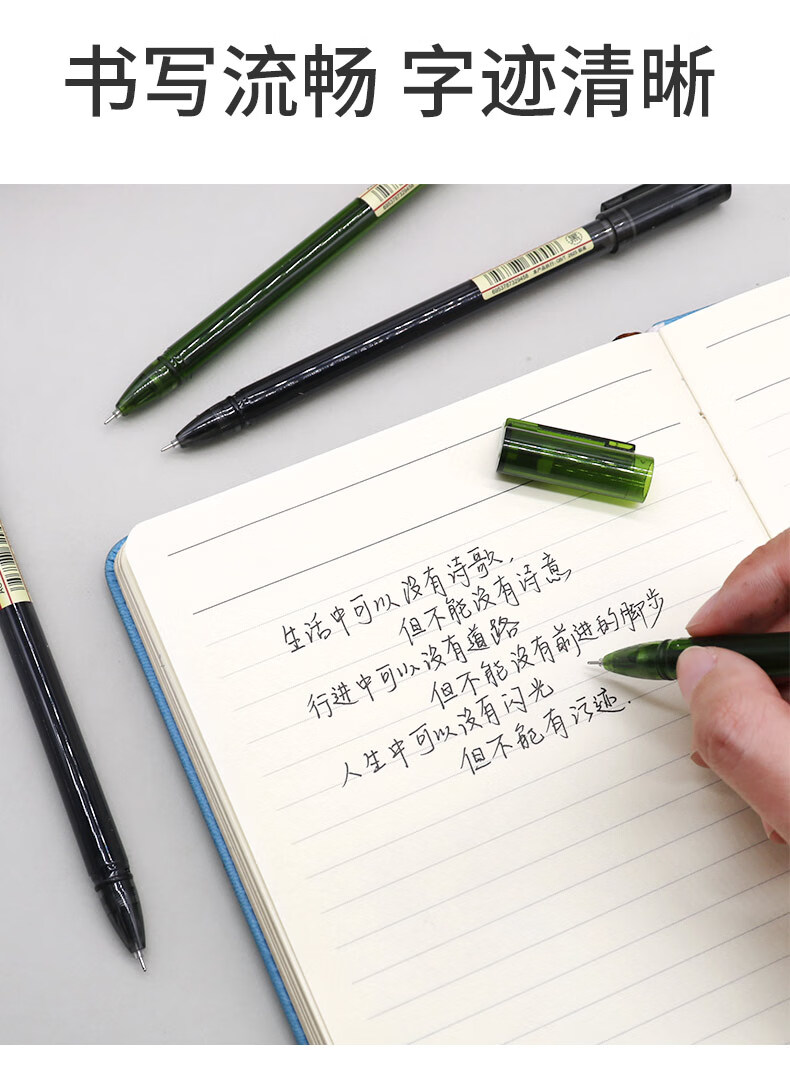 书写流畅 字迹清晰
生活中可以没有诗歌,
但不能没有诗意
行进中可以没有道路
但不能没有前进的脚步
人生中可以没有闪光
但不能有污迹.